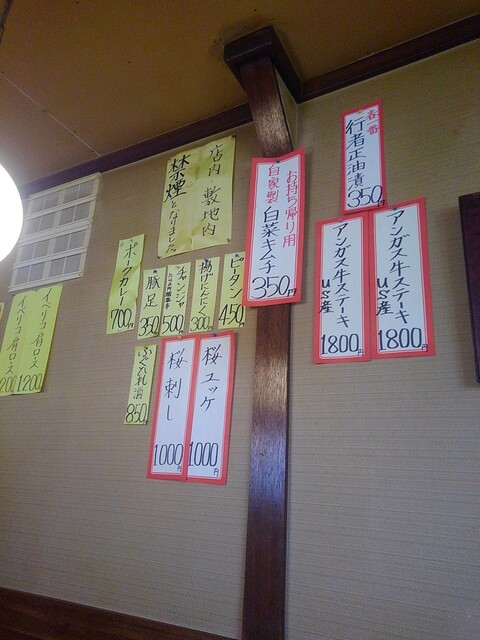 春一番
行者正油漬
350
アンガス牛ステーキ
US産
1800円
アンガス牛ステーキ
US産
1800円
お持ち帰り用
自家製 白菜キムチ
350円
店内・敷地内
禁煙となりました。
ピータン
450
揚げにんにく
300円
チャンジャ
500
豚足
350
ポークカレー
700円
桜ユッケ
1000円
桜刺し
1000円
850
イベリコ肩ロース
1200
イベリコ肩ロース
1200